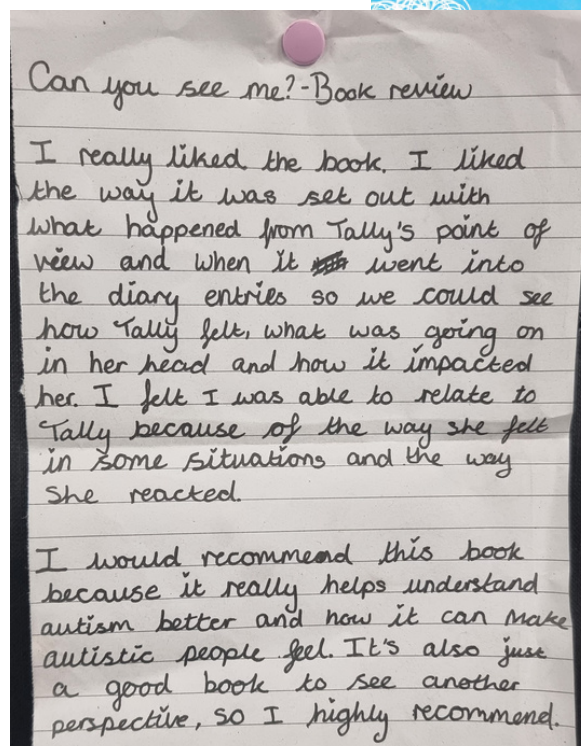 Can you see me? - Book review
I really liked the book. I liked
the way it was set out with
what happened from Tally's point of
view and when it went into
the diary entries so we could see
how Tally felt, what was going on
in her head and how it impacted
her. I felt I was able to relate to
Tally because of the way she felt
in some situations and the way
she reacted.
I would recommend this book
because it really helps understand
autism better and how it can make
autistic people feel. It's also just
a good book to see another
perspective, so I highly recommend.